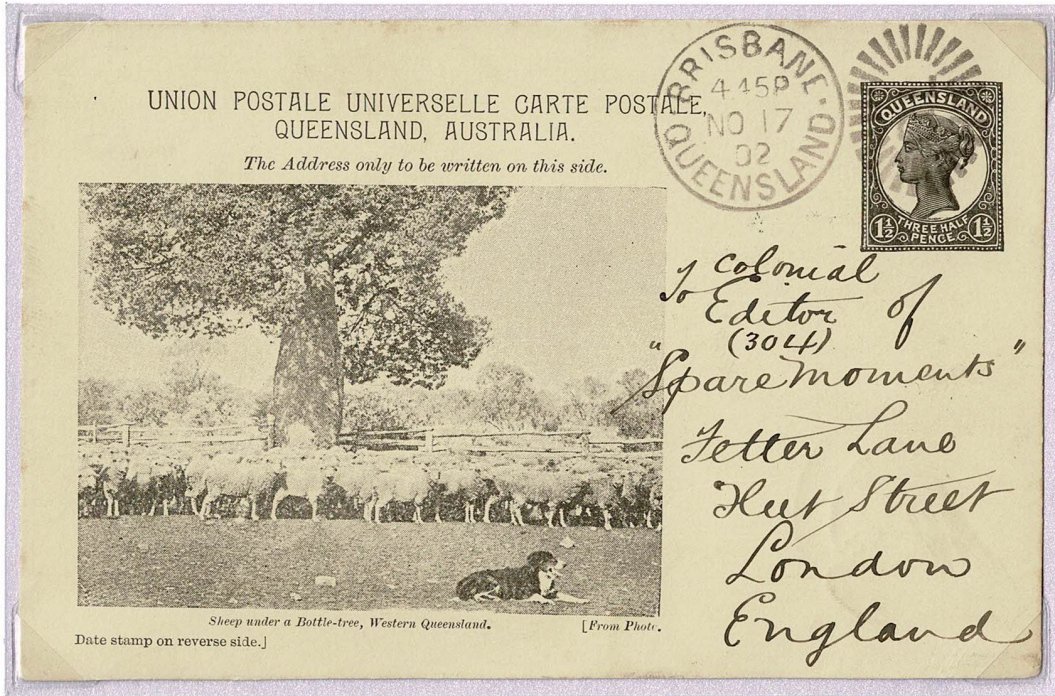 UNION POSTALE UNIVERSELLE CARTE POSTALE,
QUEENSLAND, AUSTRALIA.
The Address only to be written on this side.
BRISBANE
4 45P
NO 17
02
QUEENSLAND
QUEENSLAND
1½ THREE HALF 1½
PENCE
To Colonial
Editor of
(304)
"Spare Moments"
Fetter Lane
Fleet Street
London
England
Sheep under a Bottle-tree, Western Queensland. [From Photo.
Date stamp on reverse side.]